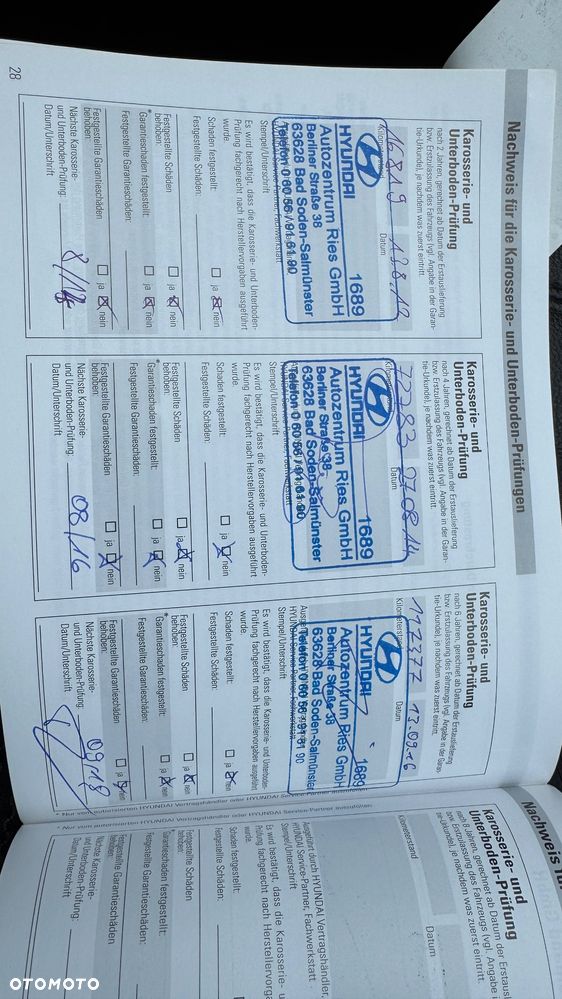 28
Nachweis für die Karosserie- und Unterboden-Prüfungen
Karosserie- und
Unterboden-Prüfung
nach 2 Jahren, gerechnet ab Datum der Erstauslieferung
bzw. Erstzulassung des Fahrzeugs (vgl. Angabe in der Garan-
tie-Urkunde), je nachdem was zuerst eintritt.
16819
Datum
HYUNDAI 1689
Autozentrum Ries GmbH
Berliner Straße 38
63628 Bad Soden-Salmünster
Telefon 0 60 56 / 91 61 90
Stempel/Unterschrift
Es wird bestätigt, dass die Karosserie- und Unterboden-
Prüfung fachgerecht nach Herstellervorgaben ausgeführt
wurde.
Schaden festgestellt: ja nein
Festgestellte Schäden:
Festgestellte Schäden
behoben: ja nein
* Garantieschaden festgestellt: ja nein
Festgestellte Garantieschäden:
Festgestellte Garantieschäden
behoben: ja nein
Nächste Karosserie-
und Unterboden-Prüfung:
Datum/Unterschrift
Karosserie- und
Unterboden-Prüfung
nach 4 Jahren, gerechnet ab Datum der Erstauslieferung
bzw. Erstzulassung des Fahrzeugs (vgl. Angabe in der Garan-
tie-Urkunde), je nachdem was zuerst eintritt.
72783 07.08.14
Datum
HYUNDAI 1689
Autozentrum Ries GmbH
Berliner Straße 38
63628 Bad Soden-Salmünster
Telefon 0 60 56 / 91 61 90
Stempel/Unterschrift
Es wird bestätigt, dass die Karosserie- und Unterboden-
Prüfung fachgerecht nach Herstellervorgaben ausgeführt
wurde.
Schaden festgestellt: ja nein
Festgestellte Schäden:
Festgestellte Schäden
behoben: ja nein
* Garantieschaden festgestellt: ja nein
Festgestellte Garantieschäden:
Festgestellte Garantieschäden
behoben: ja nein
Nächste Karosserie-
und Unterboden-Prüfung: 08/16
Datum/Unterschrift
Karosserie- und
Unterboden-Prüfung
nach 6 Jahren, gerechnet ab Datum der Erstauslieferung
bzw. Erstzulassung des Fahrzeugs (vgl. Angabe in der Garan-
tie-Urkunde), je nachdem was zuerst eintritt.
117377 13.09.16
Kilometerstand Datum
HYUNDAI 1689
Autozentrum Ries GmbH
Berliner Straße 38
63628 Bad Soden-Salmünster
Telefon 0 60 56 / 91 61 90
Stempel/Unterschrift
Es wird bestätigt, dass die Karosserie- und Unterboden-
Prüfung fachgerecht nach Herstellervorgaben ausgeführt
wurde.
Schaden festgestellt: ja nein
Festgestellte Schäden:
Festgestellte Schäden
behoben: ja nein
* Garantieschaden festgestellt: ja nein
Festgestellte Garantieschäden:
Festgestellte Garantieschäden
behoben: ja nein
Nächste Karosserie-
und Unterboden-Prüfung: 09.18
Datum/Unterschrift
* Nur vom autorisierten HYUNDAI Vertragshändler oder HYUNDAI Service-Partner auszufüllen
Nachweis für
Karosserie- und
Unterboden-Prüfung
nach 8 Jahren, gerechnet ab Datum der Erstaus
bzw. Erstzulassung des Fahrzeugs (vgl. Angabe
tie-Urkunde), je nachdem was zuerst eintritt.
Kilometerstand Datum
Ausgeführt durch HYUNDAI Vertragshändler,
HYUNDAI Service-Partner, Fachwerkstatt
Stempel/Unterschrift
Es wird bestätigt, dass die Karosserie- u
Prüfung fachgerecht nach Herstellervorga
wurde.
Schaden festgestellt:
Festgestellte Schäden:
Festgestellte Schäden
behoben:
Garantieschaden festgestellt:
Festgestellte Garantieschäden:
Festgestellte Garantieschäden
behoben:
Nächste Karosserie-
und Unterboden-Prüfung:
Datum/Unterschrift
* Nur vom autorisierten HYUNDAI Vertragshändler oder HYUNDAI Service-Partner
OTOMOTO